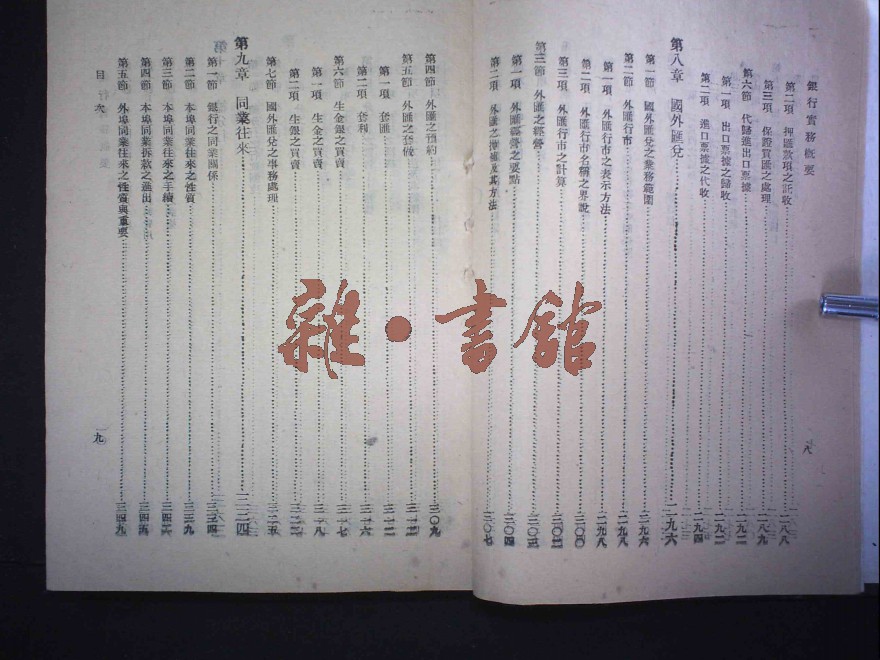 銀行實務概要
第二項 押匯款項之託收 二八八
第三項 保證買匯之處理 二八九
第六節 代歸進出口票據 二九二
第一項 出口票據之歸收 二九二
第二項 進口票據之代收 二九四
第八章 國外匯兌 二九六
第一節 國外匯兌之業務範圍 二九六
第二節 外匯行市 二九八
第一項 外匯行市之表示方法 二九八
第二項 外匯行市名稱之界說 三〇〇
第三項 外匯行市之計算
第三節 外匯之經營 三〇三
第一項 外匯經營之要點 三〇四
第二項 外匯之 及其方法 三〇七
八
第四節 外匯之預約 三〇九
第五節 外匯之套做
第一項 套匯 三一二
第二項 套利 三一六
第六節 生金銀之買賣 三一七
第一項 生金之買賣 三一八
第二項 生銀之買賣
第七節 國外匯兌之事務處理 三二五
第九章 同業往來 三三四
第一節 銀行之同業關係 三三四
第二節 本埠同業往來之性質 三三九
第三節 本埠同業往來之手續 三四二
第四節 本埠同業拆款之進出 三四五
第五節 外埠同業往來之性質與重要 三四九
目次
九
雜·書館